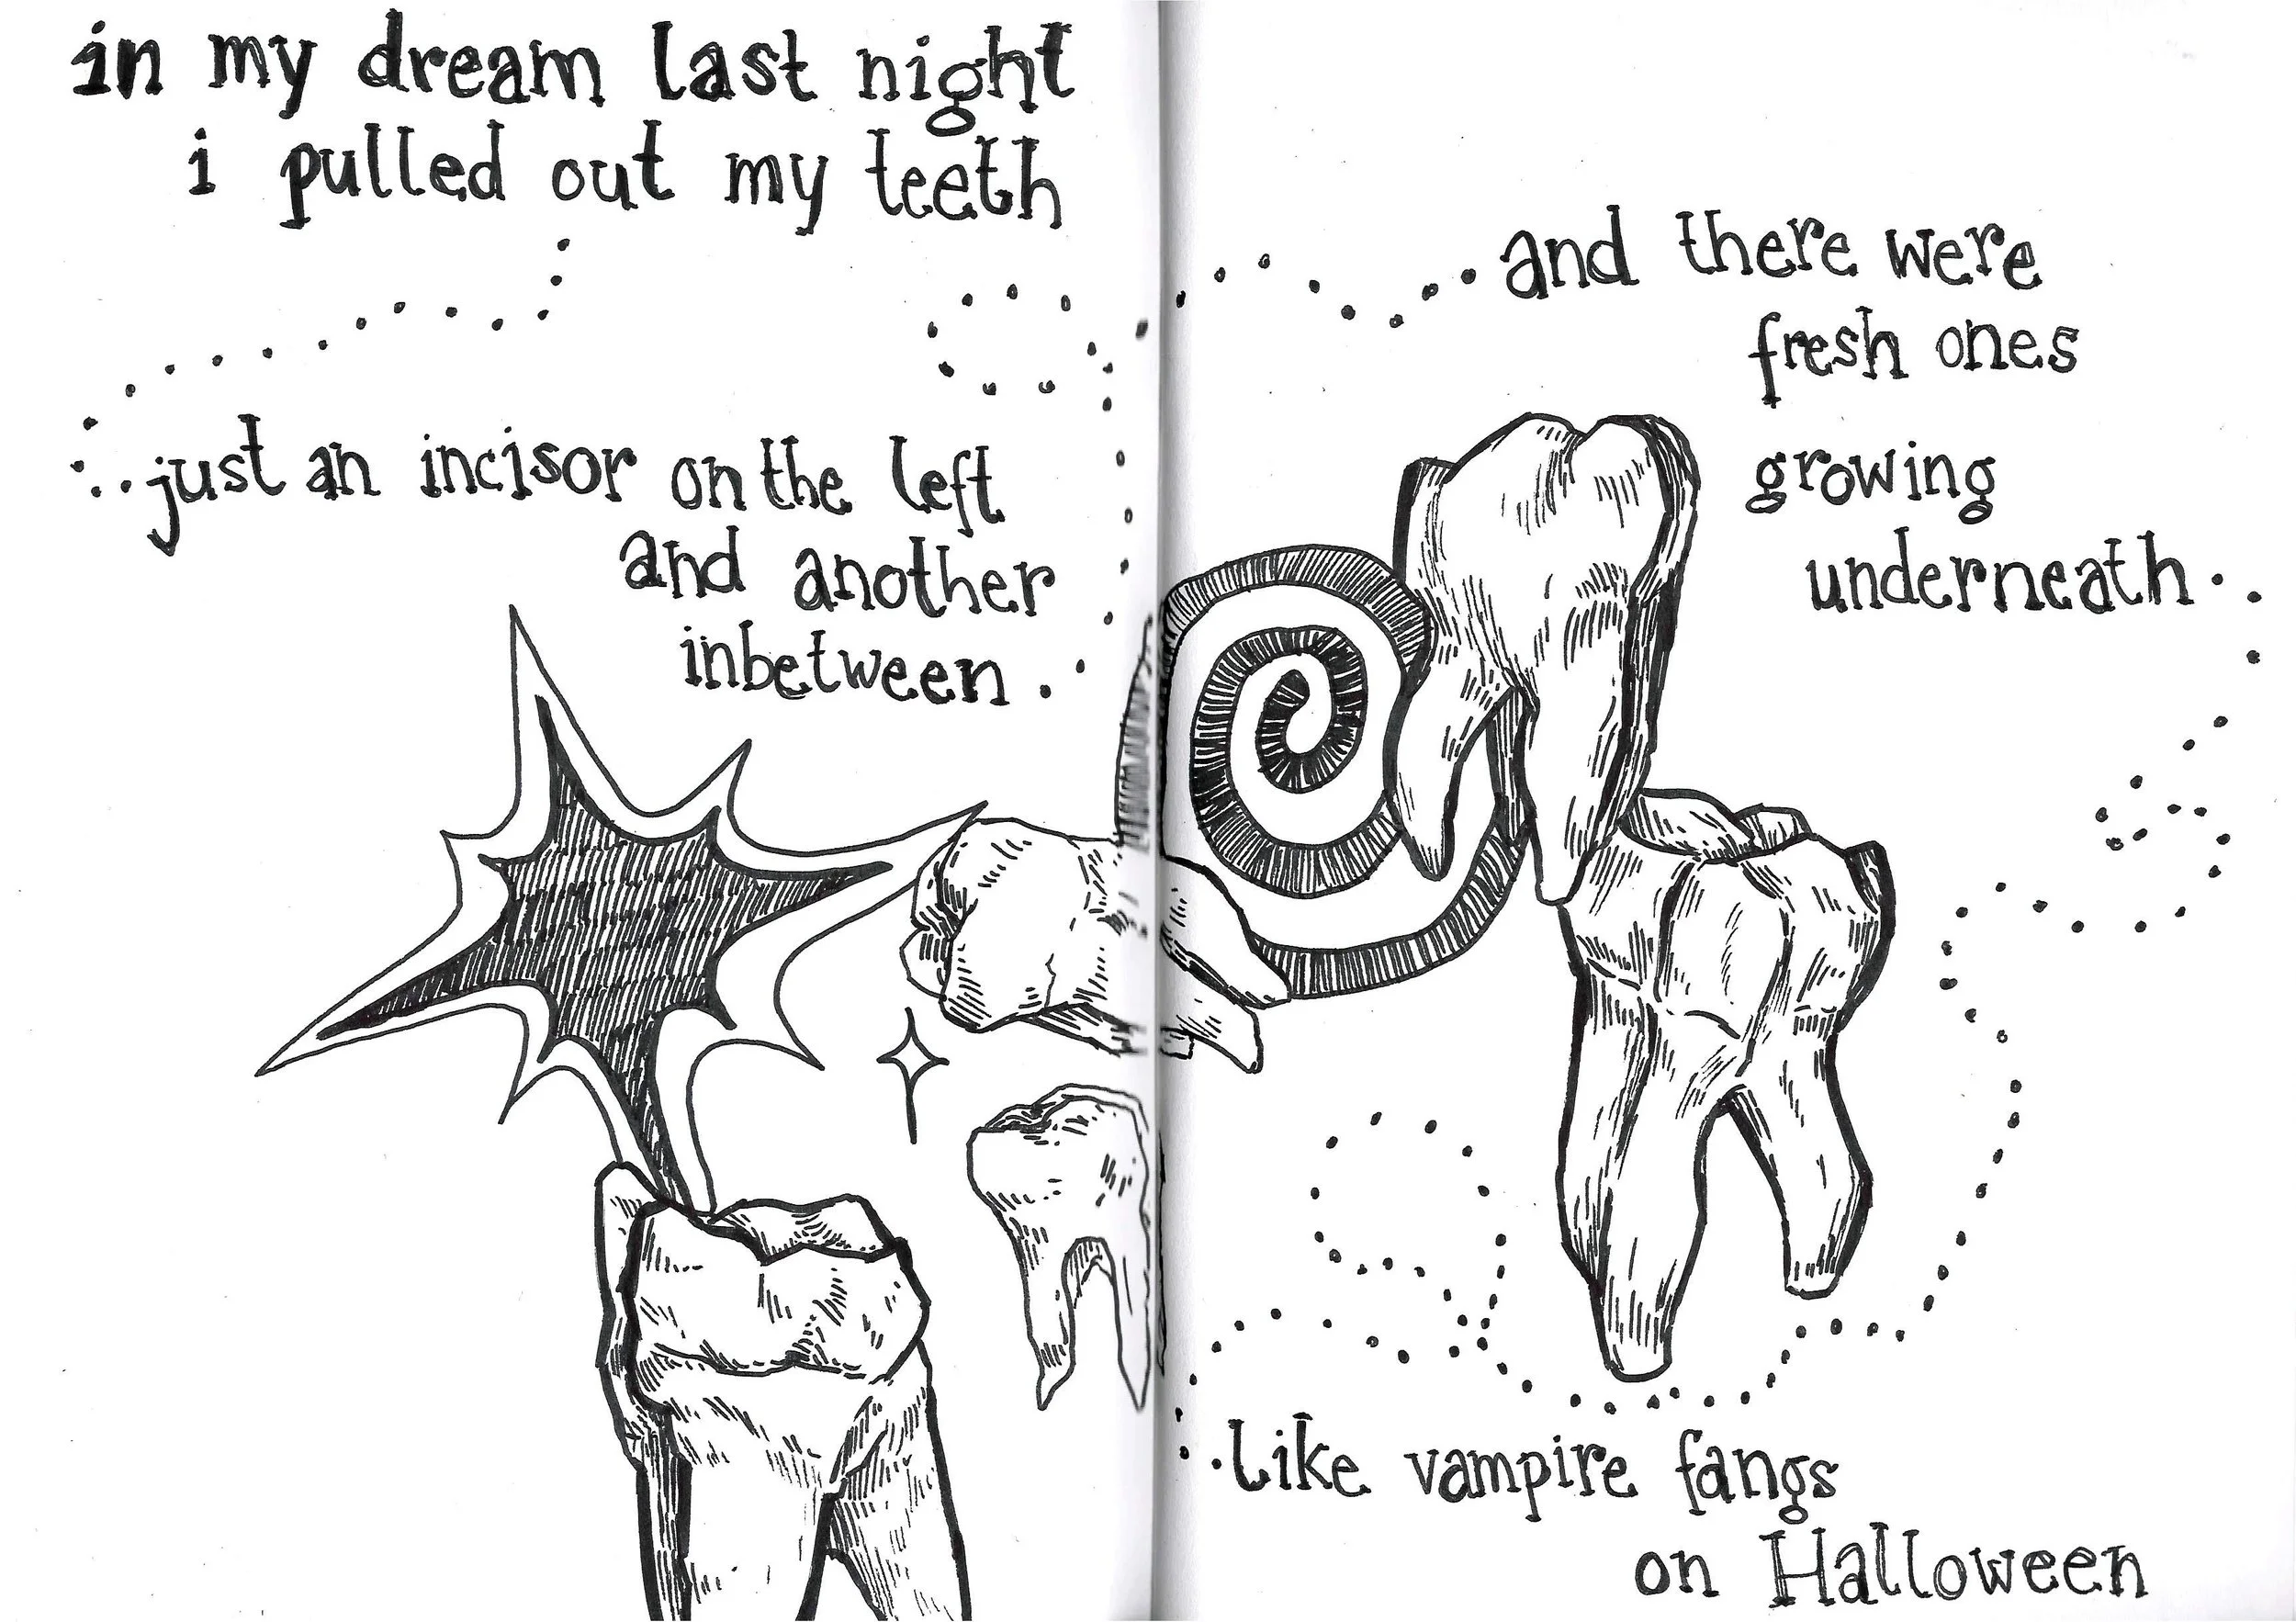 in my dream last night
i pulled out my teeth
just an incisor on the left
and another
inbetween.
and there were
fresh ones
growing
underneath.
like vampire fangs
on Halloween